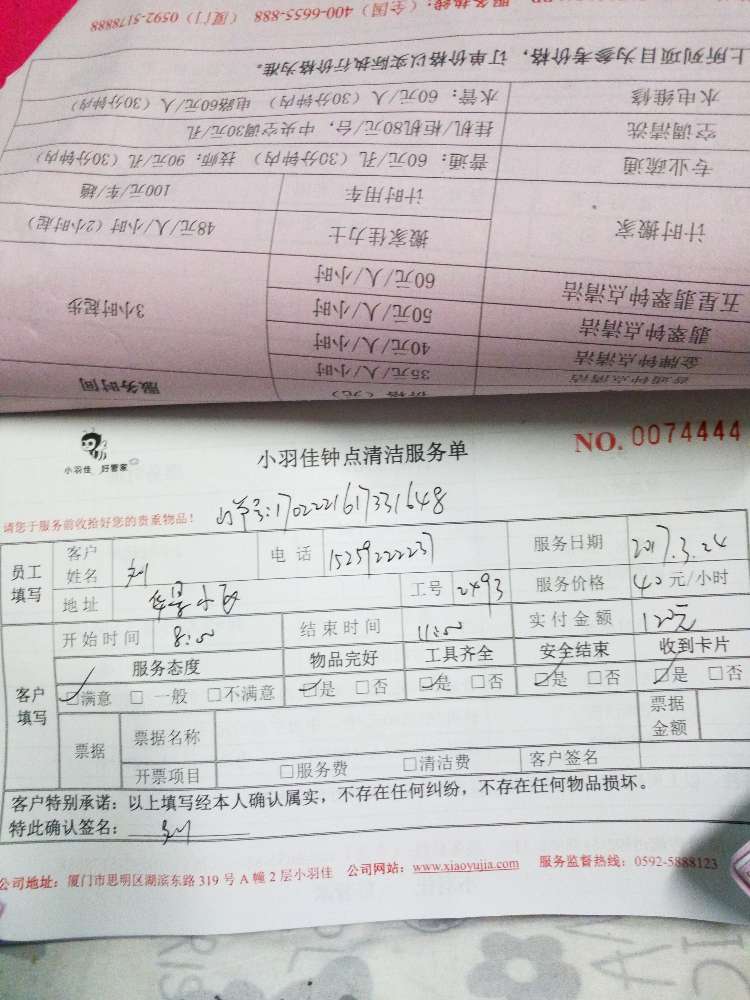 服务时间
价格（元）
普通钟点清洁 35元/人/小时
金牌钟点清洁 40元/人/小时
翡翠钟点清洁 50元/人/小时
五星翡翠钟点清洁 60元/人/小时
3小时起步
计时搬家 搬家佳力士 48元/人/小时（2小时起）
计时用车 100元/车/趟
专业疏通 普通：60元/孔（30分钟内） 技师：90元/孔（30分钟内）
空调清洗 挂机/柜机80元/台，中央空调30元/孔
水电维修 水管：60元/人（30分钟内） 电路60元/人（30分钟内）
上所列项目为参考价格，订单价格以实际执行价格为准。
（全国）400-6655-888 （厦门）0592-5178888
小羽佳 好管家
小羽佳钟点清洁服务单
NO. 0074444
请您于服务前收拾好您的贵重物品！
订单号:170222161733 1648
员工填写 客户姓名 刘 电话 15259222237 服务日期 2017.3.24
地址 华景小区 工号 2493 服务价格 40元/小时
客户填写 开始时间 8:00 结束时间 11:00 实付金额 120元
服务态度 物品完好 工具齐全 安全结束 收到卡片
☑满意 □一般 □不满意 ☑是 □否 ☑是 □否 ☑是 □否 ☑是 □否
票据 票据名称 票据金额
开票项目 □服务费 □清洁费 客户签名
客户特别承诺：以上填写经本人确认属实，不存在任何纠纷，不存在任何物品损坏。
特此确认签名： 刘
公司地址：厦门市思明区湖滨东路319号A幢2层小羽佳 公司网站：www.xiaoyujia.com 服务监督热线：0592-5888123